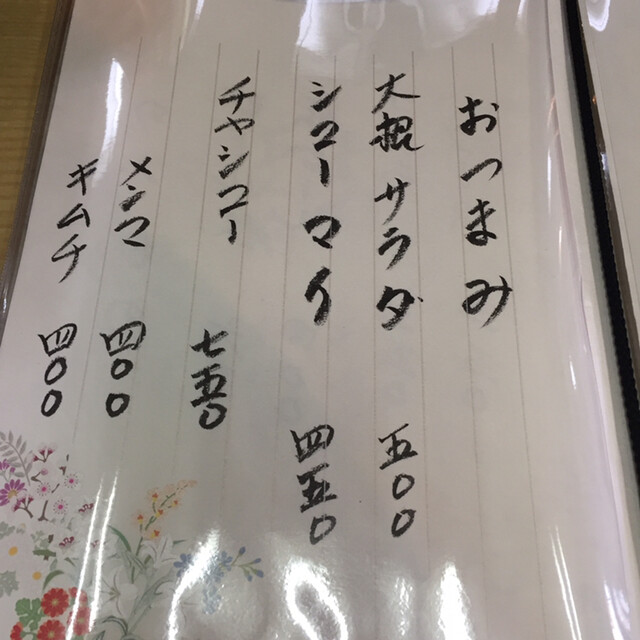 おつまみ
大根サラダ 五〇〇
シューマイ 四五〇
チャーシュー 七五〇
メンマ 四〇〇
キムチ 四〇〇